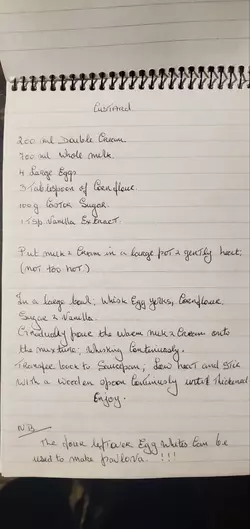 Custard
200 ml Double Cream
700 ml Whole milk
4 Large Eggs
3 Tablespoon of Cornflour
100g Castor Sugar
1 Tsp Vanilla Extract.
Put milk & Cream in a large pot & gently heat.
(not too hot)
In a large bowl; Whisk Egg yolks, Cornflour
Sugar & Vanilla.
Gradually pour the warm milk & Cream onto
the mixture; Whisking Continuously.
Transfer back to Saucepan; Low heat and Stir
with a wooden spoon Continuosly until thickened
Enjoy.
NB
The four leftover Egg Whites Can be
used to make pavlova. !!!